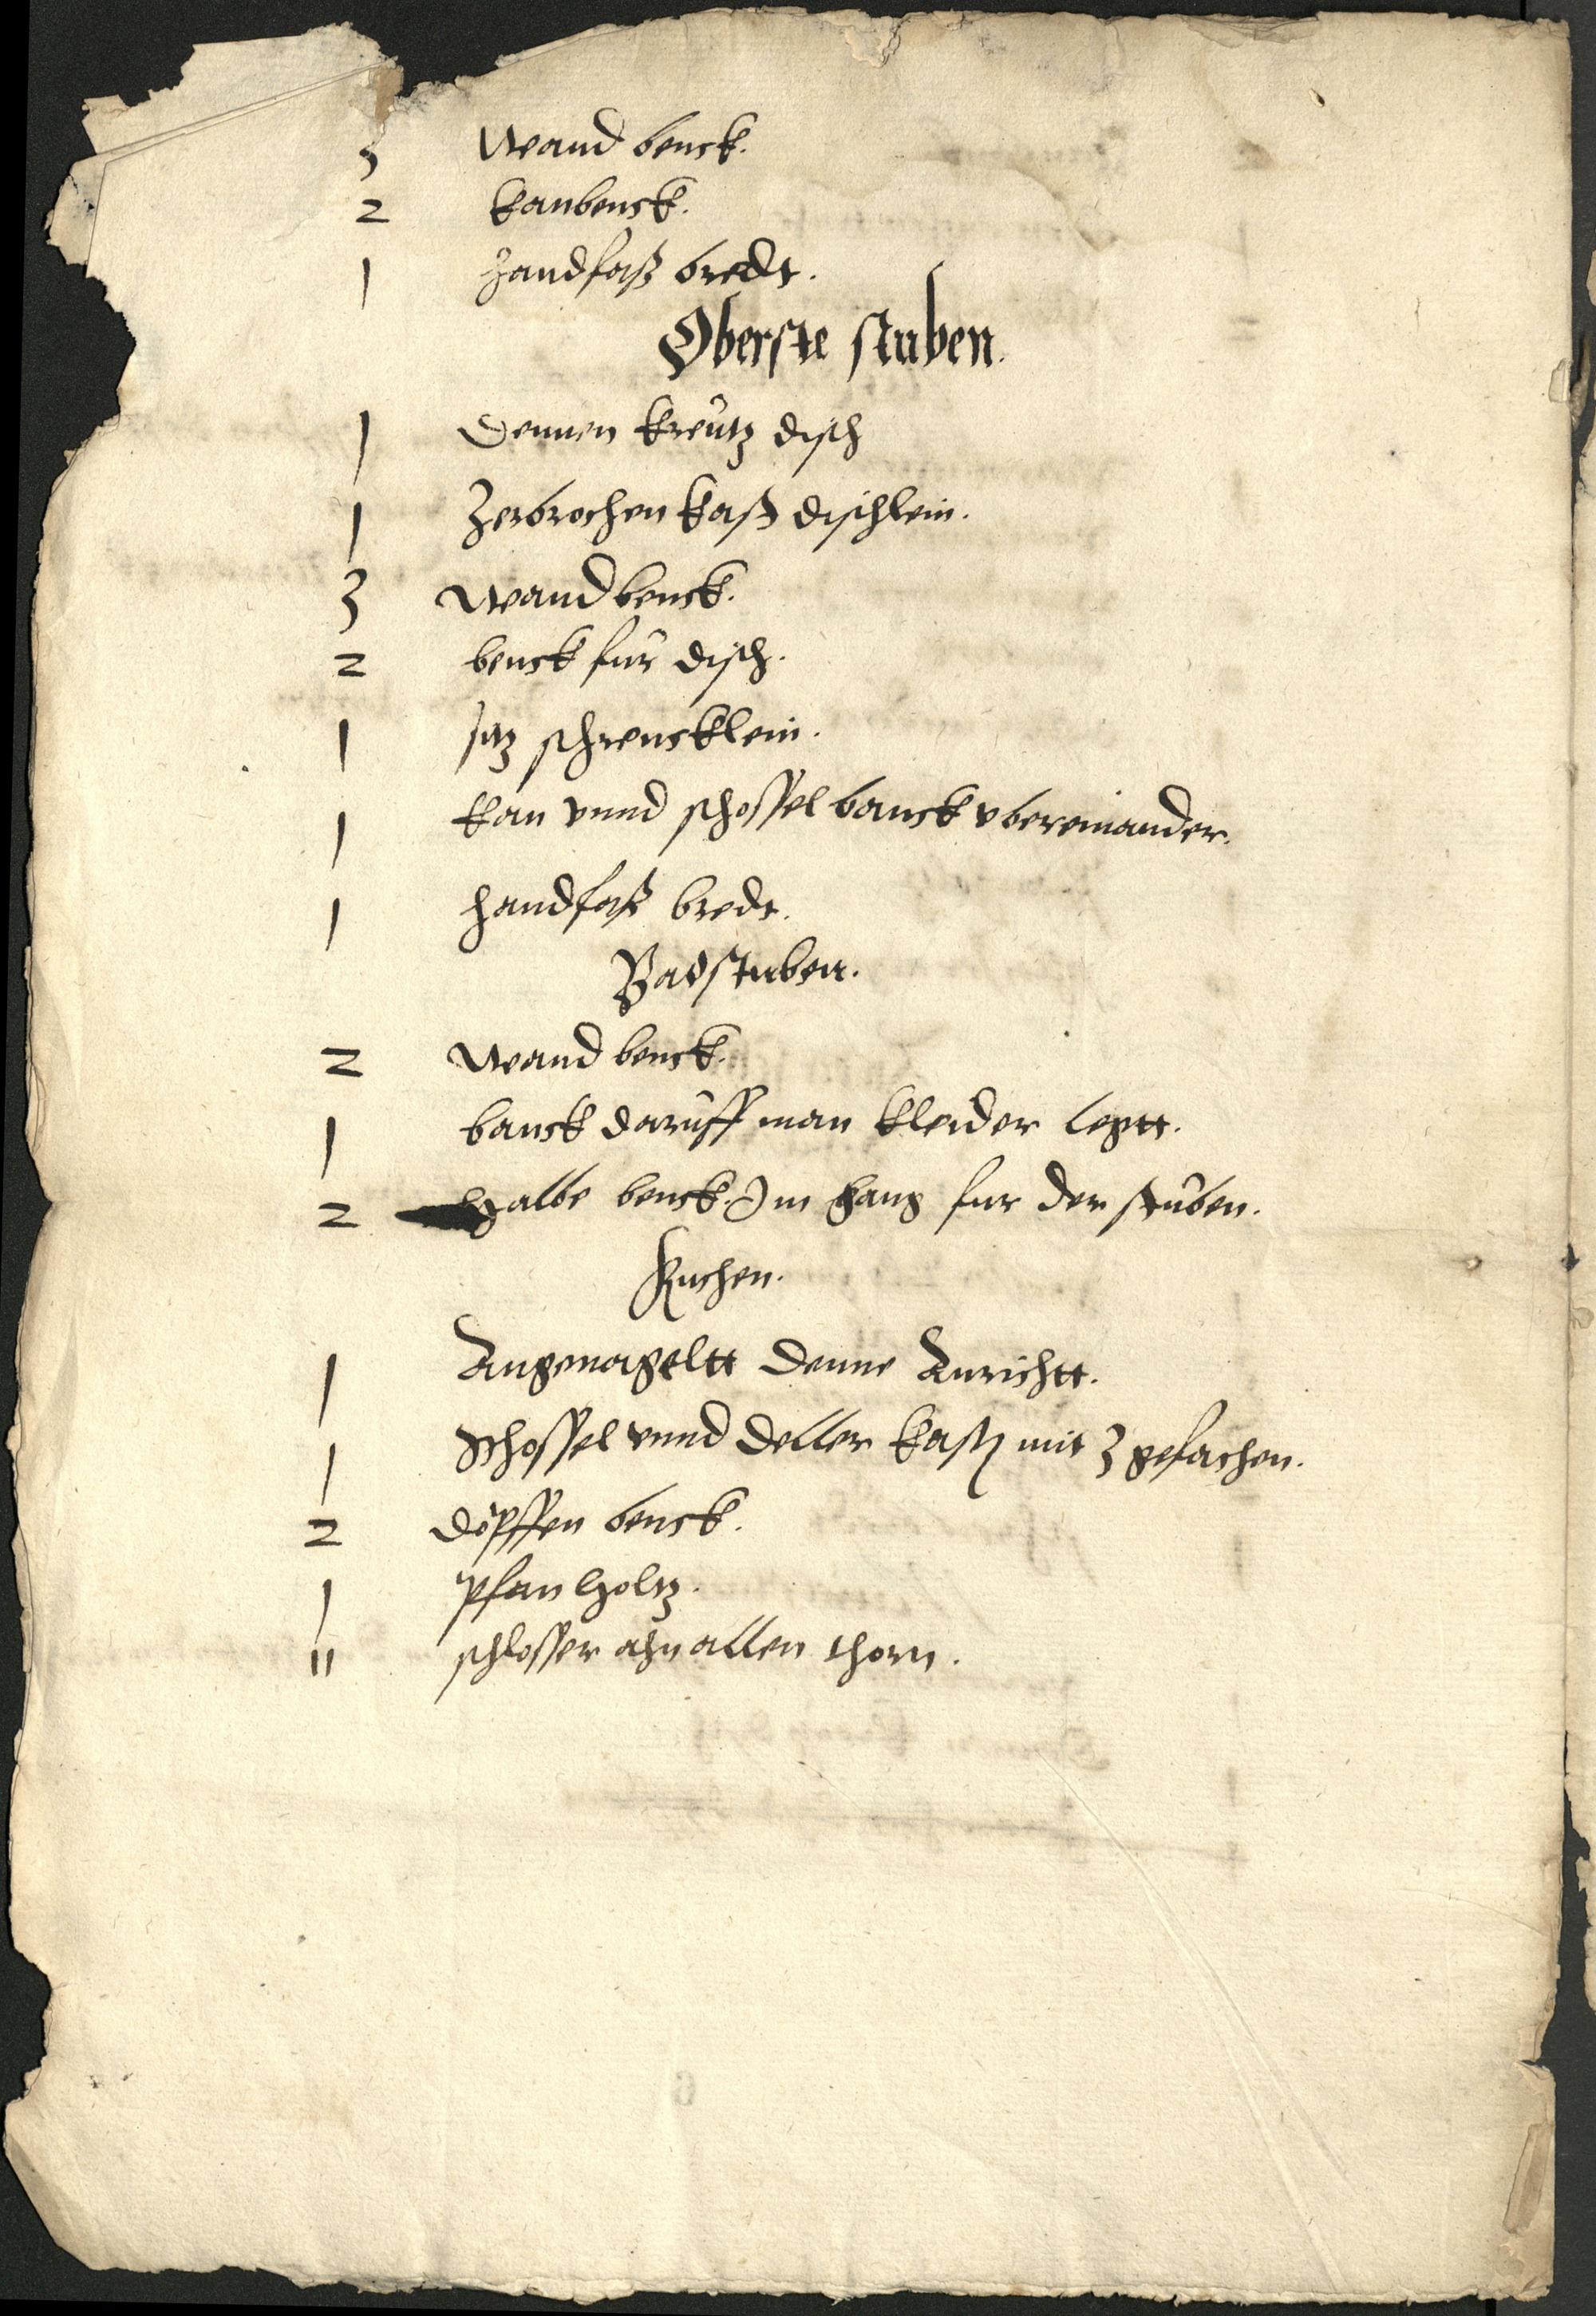 3 Wand benck.
2 kanbenck.
1 Handfaß bredt.
Oberste stuben.
1 Dennen kreutz disch
1 Zerbrochen kaß dischlein.
3 Wand benck.
2 benck fur disch.
1 sitz schrencklein.
1 kan vnnd schossel banck vbereinander.
1 handfaß bredt.
Badstuben.
2 Wand benck.
1 banck daruff man kleider legtt.
2 Halbe benck. Im gang fur der stuben.
Kuchen.
1 Angenageltt denne Anrichtt.
1 Schossel vnnd deller kasten mit 3 gefachen.
2 döpffen benck.
1 Pfan holtz.
11 schlosser ahn allen thorn.